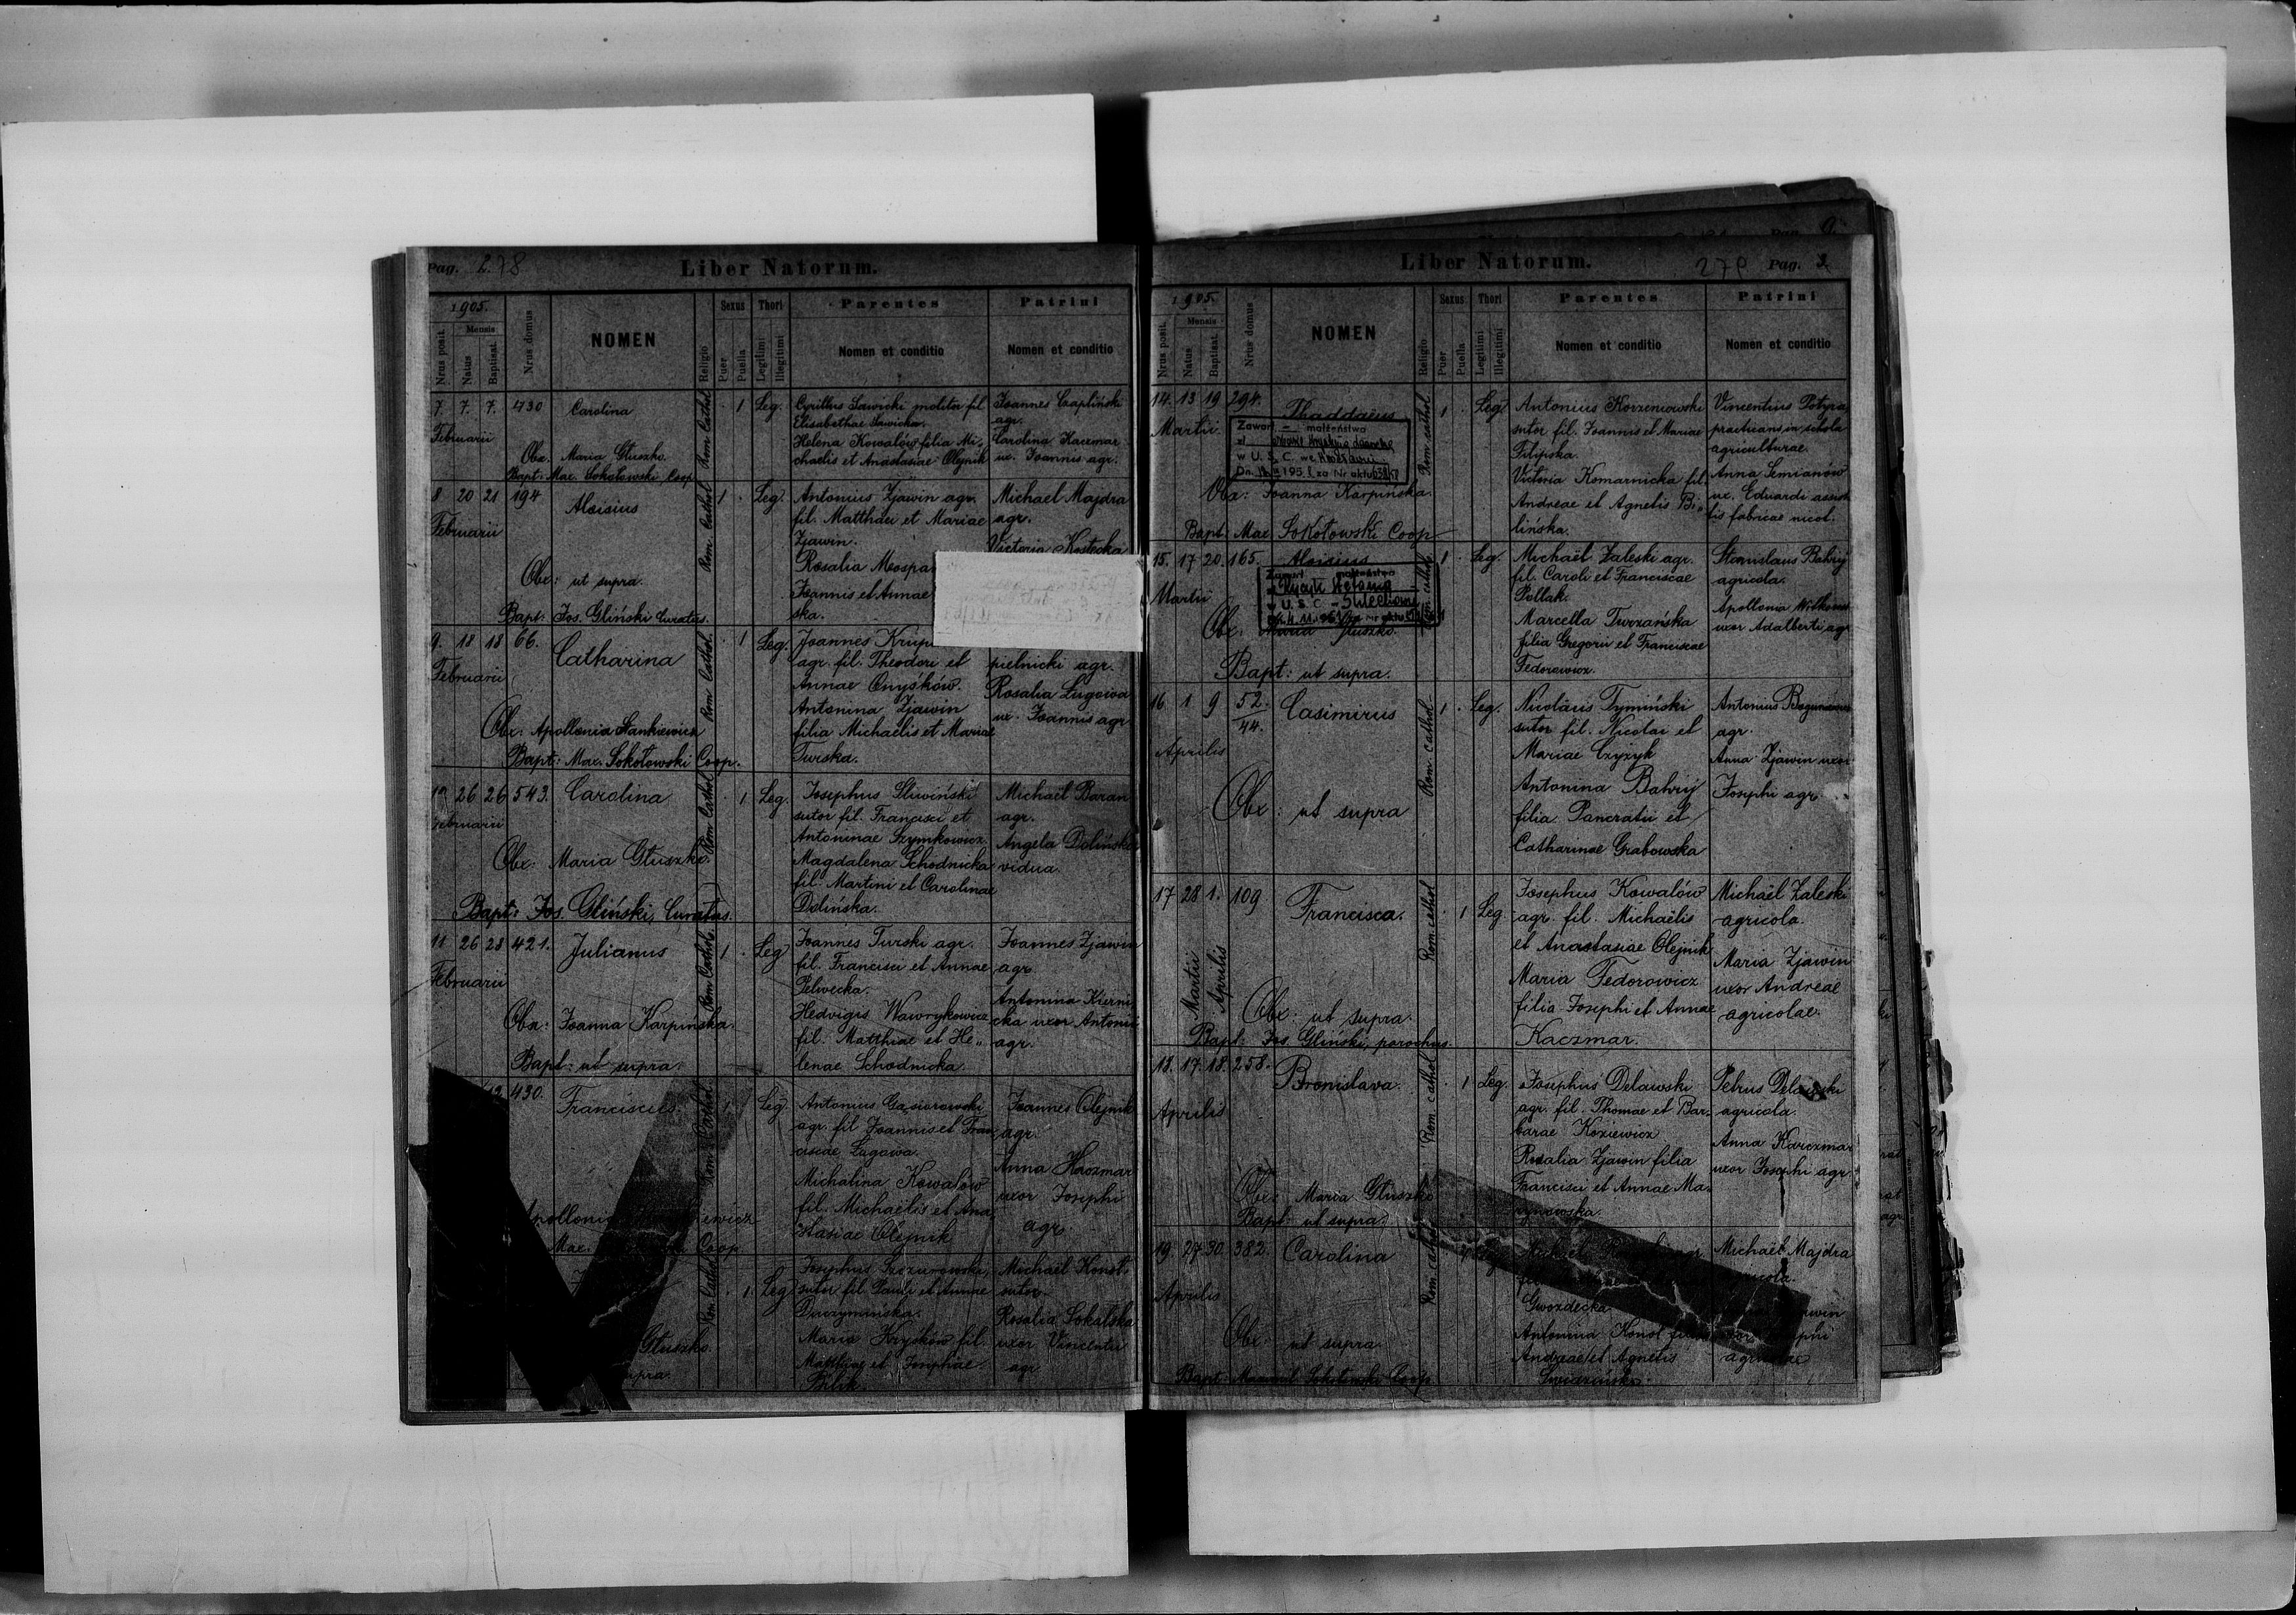 Pag. 2. 278
Liber Natorum.
1905.
Nrus posit.
Mensis
Natus
Baptisat.
Nrus domus
NOMEN
Religio
Sexus
Puer
Puella
Thori
Legitimi
Illegitimi
Parentes
Nomen et conditio
Patrini
Nomen et conditio
7. 7. 7. 430 Carolina
Februarii
Rom. Cathol.
1 Leg.
Obx. Maria Głuszko.
Bapt: Mac. Sokołowski, Coop.
Cyrillus Sawicki molitor fil
Elisabethae Sawicka.
Helena Kowalów filia Mi-
chaelis et Anastasiae Olejnik
Joannes Czapliński
agr.
Carolina Kaczmar
ux. Joannis agr.
8 20 21 194 Aloisius
Februarii
Rom. Cathol.
1 Leg.
Obx: ut supra.
Bapt: Jos. Gliński Curatus.
Antonius Zjawin agr.
fil. Matthaei et Mariae
Zjawin.
Rosalia
Joannis et Annae
ska.
Michael Majdra
agr.
Victoria Kostecka
9. 18 18 66. Catharina
Februarii
Rom. Cathol.
1 Leg.
Obx: Apollonia Stankiewicz
Bapt: Mac. Sokołowski Coop.
Joannes Krup
agr. fil. Theodori et
Annae Onyśków.
Antonina Zjawin
filia Michaelis et Mariae
Turska.
pielnicki agr.
Rosalia Ługowa
ux. Joannis agr
10 26 26 543. Carolina
Februarii
Rom Cathol
1 Leg.
Obx: Maria Głuszko.
Bapt: Jos. Gliński, Curatus.
Josephus Śliwiński
sutor fil. Francisci et
Antoninae Szymkowicz.
Magdalena Schodnicka
fil. Martini et Carolinae
Dolińska.
Michaël Baran
agr.
Angela Dolińska
vidua.
11 26 28 421. Julianus
Februarii
Rom Cathol.
1 Leg
Obx: Joanna Karpińska.
Bapt: ut supra.
Joannes Turski agr.
fil. Francisci et Annae
Pelwecka.
Hedvigis Wawrykowicz
fil. Matthiae et He-
lenae Schodnicka.
Joannes Zjawin
agr.
Antonina Kierni
cka uxor Antonii
agr.
12 430. Franciscus
Rom Cathol
1 Leg
Apollonia
Mac. Coop.
Antonius Gąsiorowski
agr. fil Joannis et Fran
ciscae Ługowa.
Michalina Kowalów
fil. Michaëlis et Ana
stasiae Olejnik
Joannes Olejnik
agr.
Anna Kaczmar
uxor Josephi
agr.
Rom. Cathol
1. Leg
Głuszko.
supra.
Josephus Szczurowski,
sutor fil. Pauli et Annae
Maria Hryśków fil.
Matthiae et Josephae
Bilik.
Michaël Konst.
sutor.
Rosalia Sokalska
uxor Vincentii
agr
Liber Natorum.
279 Pag. 3.
1905.
Nrus posit.
Mensis
Natus
Baptisat.
Nrus domus
NOMEN
Religio
Sexus
Puer
Puella
Thori
Legitimi
Illegitimi
Parentes
Nomen et conditio
Patrini
Nomen et conditio
14. 13 19 294. Thaddaeus
Martii
Zawarł - małżeństwo
w U. S. C. we Wrocławiu
Rom. cathol
1 Leg
Obx: Joanna Karpińska.
Bapt: Mac. Sokołowski Coop
Antonius Korzeniowski
sutor fil. Joannis et Mariae
Filipska.
Victoria Komarnicka fil.
Andreae et Agnetis Bi-
lińska.
Vincentius Potyra,
practicans in schola
agriculturae.
Anna Semianów
ux. Eduardi assist
tis fabricae nicot.
15. 17 20. 165. Aloisius
Martii
Zawarł małżeństwo
w U. S. C.
Rom. cathol.
1 Leg
Obx: Maria Głuszko.
Bapt: ut supra.
Michaël Zaleski agr.
fil. Caroli et Franciscae
Pollak.
Marcella Turzańska
filia Gregorii et Franciscae
Fedorowicz.
Stanislaus Bahrij
agricola.
Apollonia
uxor Adalberti agr
16 1 9 52./44. Casimirus
Aprilis
Rom. cathol
1 Leg.
Obx: ut supra
Nicolaus Tymiński
sutor fil. Nicolai et
Mariae Czyżyk
Antonina Bahrij
filia Pancratii et
Catharinae Grabowska
Antonius
agr.
Anna Zjawin uxor
Josephi agr.
17 28 1. 109 Francisca.
Martii
Aprilis
Rom. cathol
1 Leg.
Obx: ut supra.
Bapt: Jos. Gliński, parochus.
Josephus Kowalów
agr. fil. Michaëlis
et Anastasiae Olejnik
Maria Fedorowicz
filia Josephi et Annae
Kaczmar.
Michaël Zaleski
agricola.
Maria Zjawin
uxor Andreae
agricolae.
18. 17. 18. 258. Bronislava.
Aprilis
Rom. cathol
1 Leg.
Obx: Maria Głuszko
Bapt: ut supra.
Josephus Delawski
agr. fil. Thomae et Bar-
barae Koziewicz
Rosalia Zjawin filia
Francisci et Annae Ma-
Petrus Delawski
agricola.
Anna Karczmar
uxor Josephi agr
19. 27 30. 382. Carolina
Aprilis
Rom. cathol
Obx: ut supra.
Bapt: Sokołowski Coop
Gwozdecka
Antonina Konst filia
Andreae et Agnetis
Michaël Majdra
agricola.